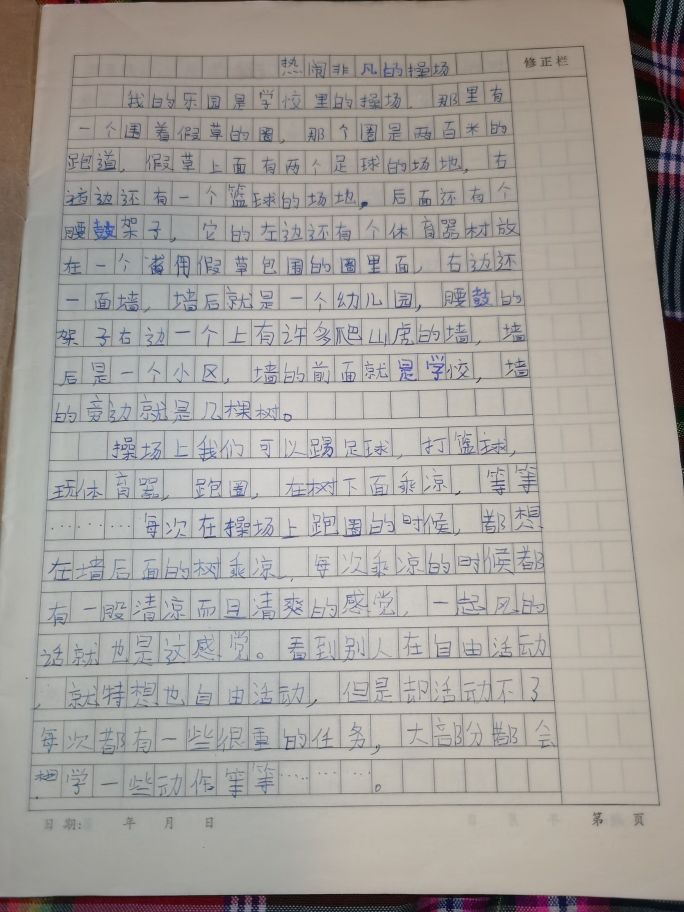 热闹非凡的操场
修正栏
我的乐园是学校里的操场，那里有
一个围着假草的圈，那个圈是两百米的
跑道，假草上面有两个足球的场地，右
边还有一个篮球的场地。后面还有个
腰鼓架子，它的左边还有个体育器材放
在一个用假草包围的圈里面，右边还
一面墙，墙后就是一个幼儿园，腰鼓的
架子右边一个上有许多爬山虎的墙，墙
后是一个小区，墙的前面就是学校，墙
的旁边就是几棵树。
操场上我们可以踢足球，打篮球，
玩体育器，跑圈，在树下面乘凉，等等
………每次在操场上跑圈的时候，都想
在墙后面的树乘凉，每次乘凉的时候都
有一股清凉而且清爽的感觉，一起风的
话就也是这感觉。看到别人在自由活动
，就特想也自由活动，但是却活动不了
每次都有一些很重的任务，大部分都会
想学一些动作等等………。
日期： 年 月 日
第 页